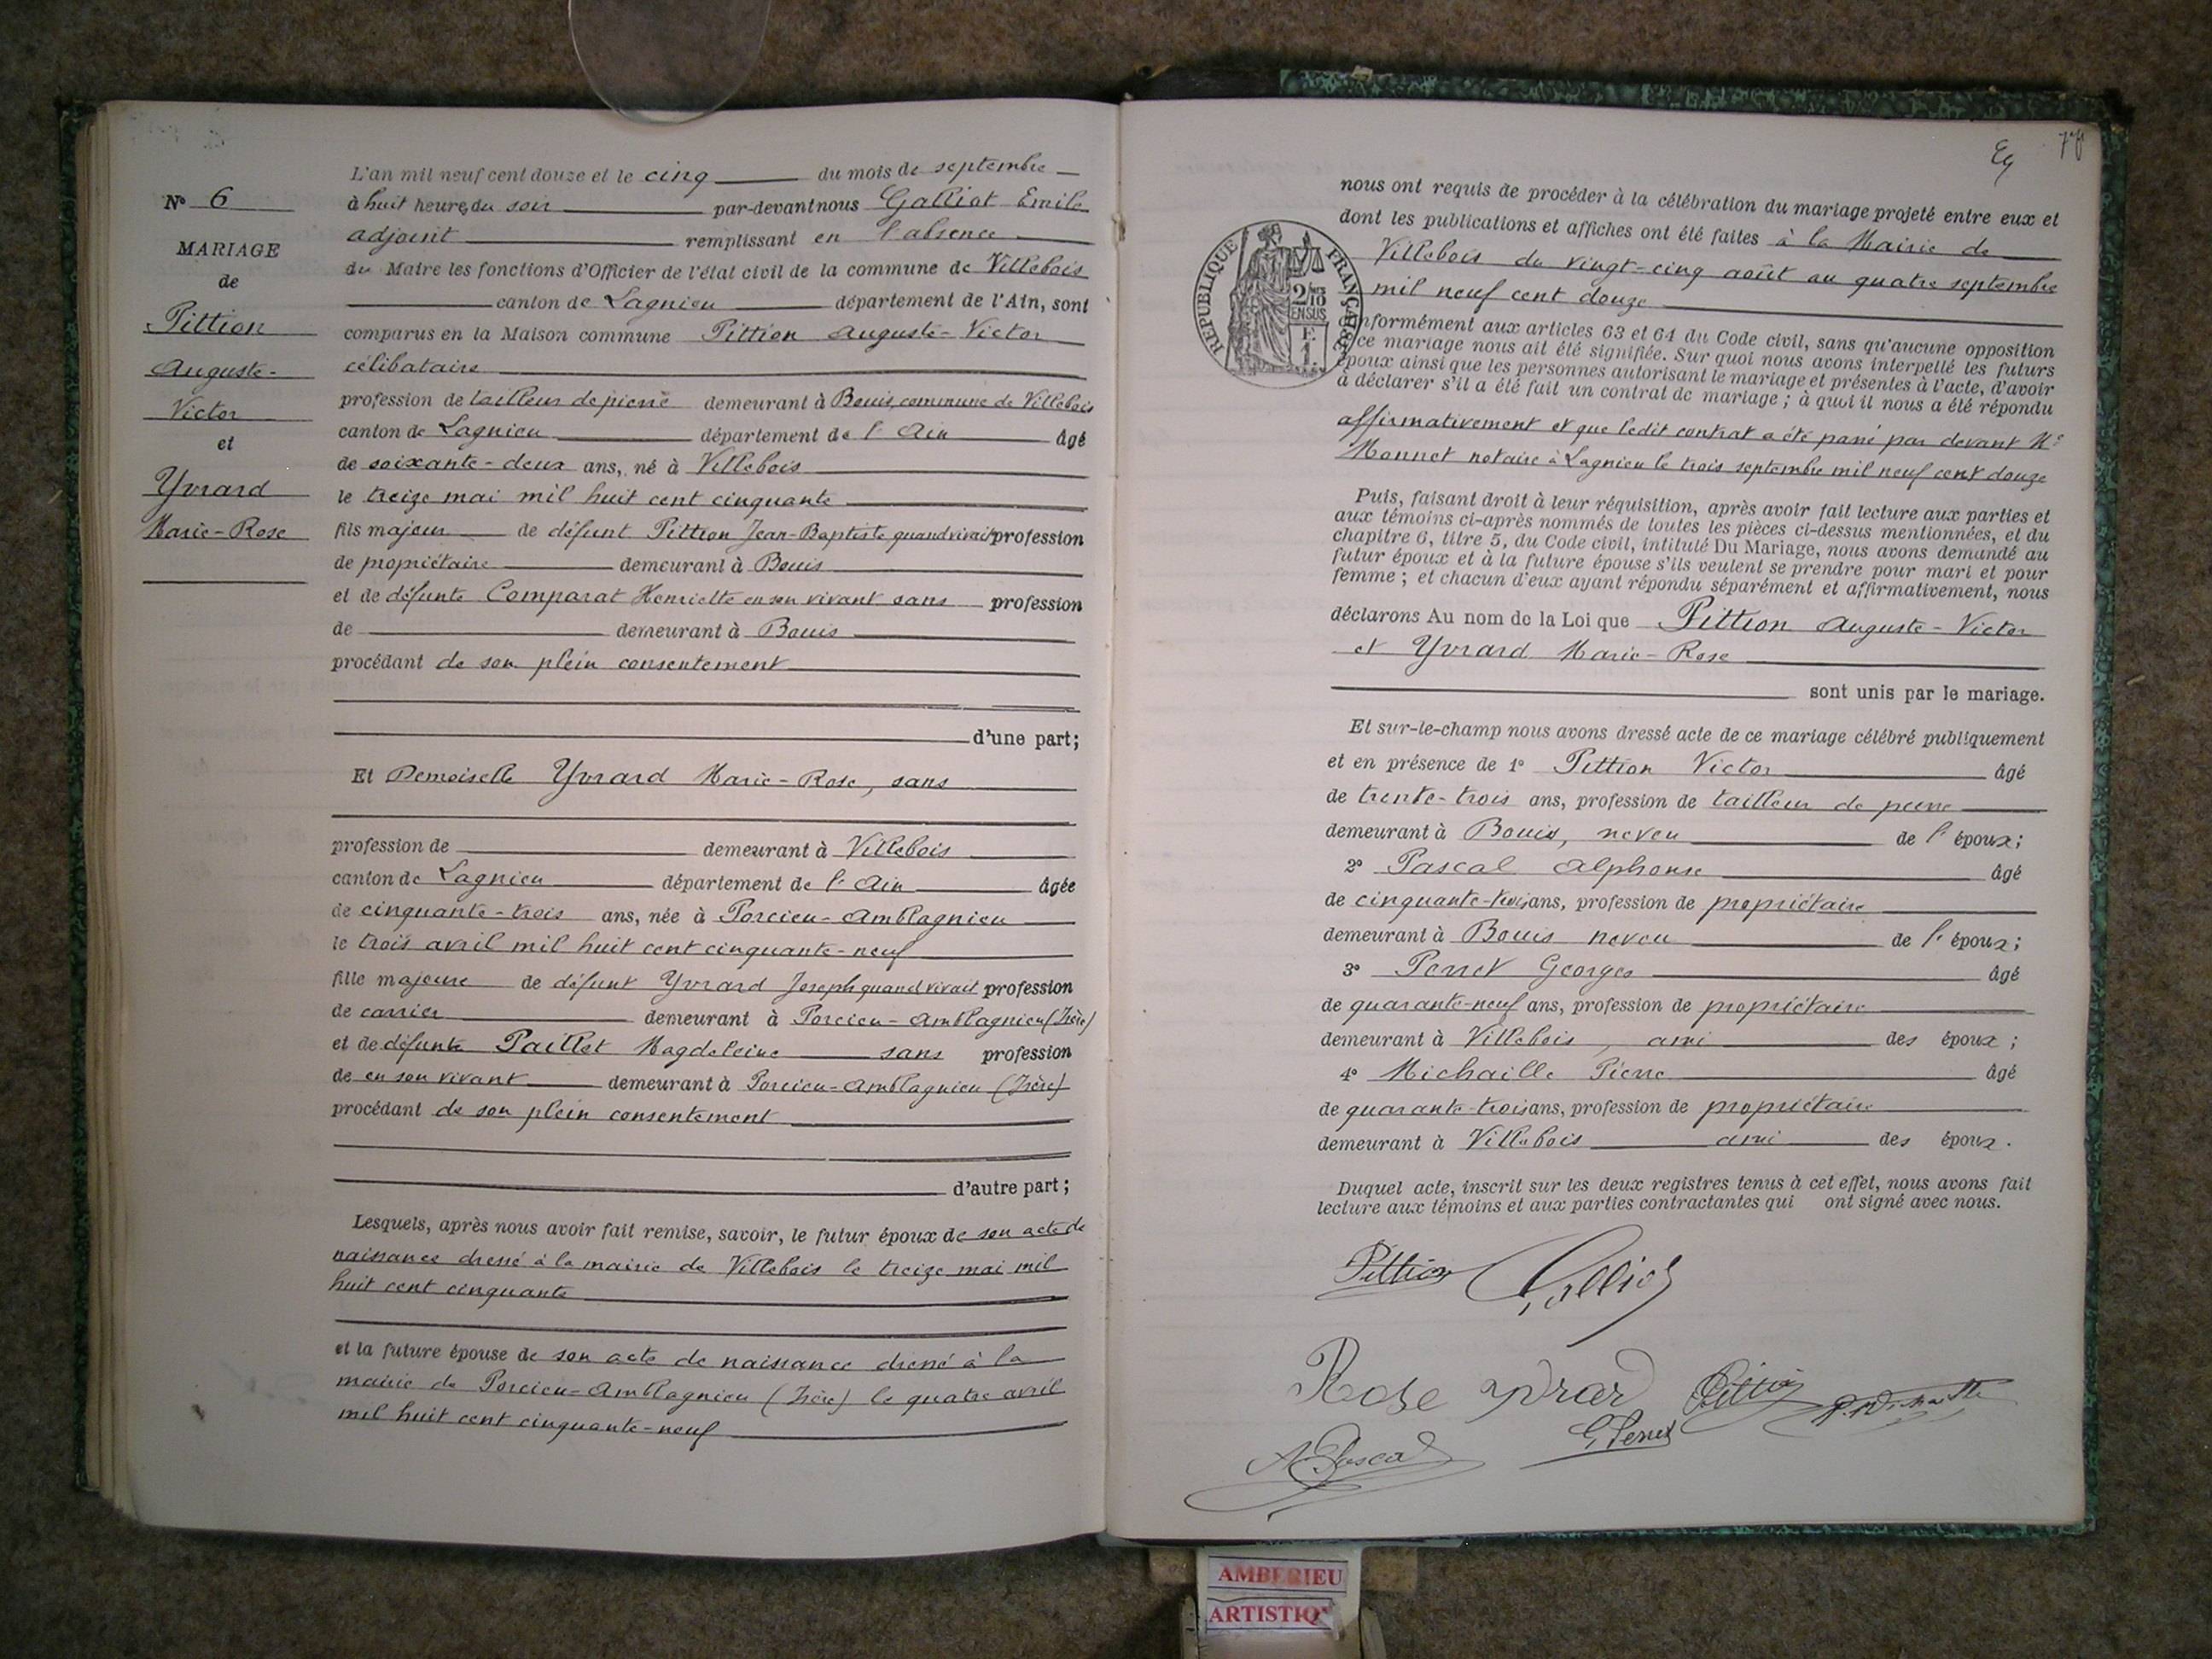 N° 6
MARIAGE
de
Pittion
Auguste-
Victor
et
Yvrard
Marie-Rose
L'an mil neuf cent douze et le cinq du mois de septembre
à huit heures du soir par-devant nous Galliot Emile
adjoint remplissant en l'absence
du Maire les fonctions d'Officier de l'état civil de la commune de Villebois
canton de Lagnieu département de l'Ain, sont
comparus en la Maison commune Pittion Auguste-Victor
célibataire
profession de tailleur de pierre demeurant à Bouis, commune de Villebois
canton de Lagnieu département de l'Ain âgé
de soixante-deux ans, né à Villebois
le treize mai mil huit cent cinquante
fils majeur de défunt Pittion Jean-Baptiste quand vivait profession
de propriétaire demeurant à Bouis
et de défunte Comparat Henriette en son vivant sans profession
de demeurant à Bouis
procédant de son plein consentement
d'une part;
Et Demoiselle Yvrard Marie-Rose, sans
profession de demeurant à Villebois
canton de Lagnieu département de l'Ain âgée
de cinquante-trois ans, née à Porcieu-Amblagnieu
le trois avril mil huit cent cinquante-neuf
fille majeure de défunt Yvrard Joseph quand vivait profession
de carrier demeurant à Porcieu-Amblagnieu (Isère)
et de défunte Paillet Magdeleine sans profession
de en son vivant demeurant à Porcieu-Amblagnieu (Isère)
procédant de son plein consentement
d'autre part;
Lesquels, après nous avoir fait remise, savoir, le futur époux de son acte de
naissance dressé à la mairie de Villebois le treize mai mil
huit cent cinquante
et la future épouse de son acte de naissance dressé à la
mairie de Porcieu-Amblagnieu (Isère) le quatre avril
mil huit cent cinquante-neuf
nous ont requis de procéder à la célébration du mariage projeté entre eux et
dont les publications et affiches ont été faites à la Mairie de
Villebois du vingt-cinq août au quatre septembre
mil neuf cent douze
RÉPUBLIQUE FRANÇAISE
2/10
EN SUS
F.
1.
conformément aux articles 63 et 64 du Code civil, sans qu'aucune opposition
à ce mariage nous ait été signifiée. Sur quoi nous avons interpellé les futurs
époux ainsi que les personnes autorisant le mariage et présentes à l'acte, d'avoir
à déclarer s'il a été fait un contrat de mariage ; à quoi il nous a été répondu
affirmativement et que ledit contrat a été passé par devant Me
Monnet notaire à Lagnieu le trois septembre mil neuf cent douze
Puis, faisant droit à leur réquisition, après avoir fait lecture aux parties et
aux témoins ci-après nommés de toutes les pièces ci-dessus mentionnées, et du
chapitre 6, titre 5, du Code civil, intitulé Du Mariage, nous avons demandé au
futur époux et à la future épouse s'ils veulent se prendre pour mari et pour
femme ; et chacun d'eux ayant répondu séparément et affirmativement, nous
déclarons Au nom de la Loi que Pittion Auguste-Victor
et Yvrard Marie-Rose
sont unis par le mariage.
Et sur-le-champ nous avons dressé acte de ce mariage célébré publiquement
et en présence de 1° Pittion Victor âgé
de trente-trois ans, profession de tailleur de pierre
demeurant à Bouis, neveu de l'époux;
2° Pascal Alphonse âgé
de cinquante-trois ans, profession de propriétaire
demeurant à Bouis neveu de l'époux;
3° Perret Georges âgé
de quarante-neuf ans, profession de propriétaire
demeurant à Villebois, ami des époux ;
4° Michaille Pierre âgé
de quarante-trois ans, profession de propriétaire
demeurant à Villebois ami des époux.
Duquel acte, inscrit sur les deux registres tenus à cet effet, nous avons fait
lecture aux témoins et aux parties contractantes qui ont signé avec nous.
Pittion Galliot
Rose yvrard Pittion
G Perret
A Pascal
AMBERIEU
ARTISTIQ